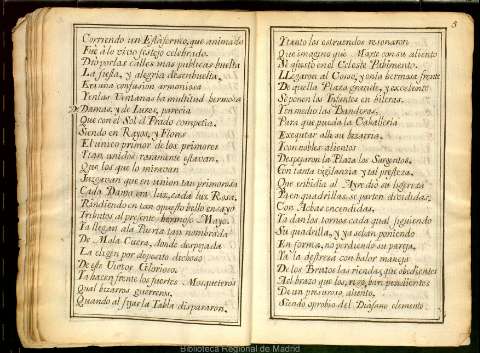 Corriendo un Estafermo, que animado
Fue à lo vicio festejo celebrado.
Dio por las calles mas publicas buelta
La fiesta, y alegria desembuelta,
Era una confusion armoniosa
Y en las Ventanas la multitud hermosa
De Damas, y de Luzes, parecia
Que con el Sol el Prado competia.
Siendo en Rayos, y Flores
El unico primor de los primores
Tean unidos raramente estavan,
Que los que lo miravan
Juzgavan que en union tan primorosa
Cada Dama era luz, cada luz Rosa,
Rindiendo en tan opuesto bello ensayo
Tributos al presente hermoso Mayo.
Ya llegan ala Puerta tan nombrada
De Mala Cuera, donde despojada
La eligen por deposito dichoso
De este Victor Glorioso.
Ya hazen frente los fuertes Mosqueteros
Qual bizarros guerreros.
Quando al fijar la Tabla dispararon,
5
Y tanto los estruendos resonaron
Que imagino que Marte con su aliento
Se assustò en el Celeste Pabimento.
Llegaron al Coso, y en la hermosa frente
De aquella Plaza grande, y excelente
Se ponen los Infantes en hileras.
En medio las Banderas,
Para que pueda la Caballeria
Exequtar alli su bizarria,
Y con nobles alientos
Despejaron la Plaza los Sargentos.
Con tanta vigilancia y tal presteza,
Que embidia al Ayre diò su ligereza
Pa en quadrillas se parten divididas,
Con Achas encendidas,
Ya dan los tornos cada qual siguiendo
Su quadrilla, y ya salen poniendo
En forma, no perdiendo su pareja,
Ya la destreza con valor maneja
De los Brutos las riendas, que obedientes
Al brazo que los rige, ban pendientes
De un presuroso aliento,
Siendo oprobio del Diafano elemento.
Biblioteca Regional de Madrid